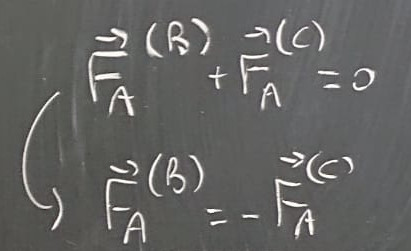 $\vec{F}_A^{(B)} + \vec{F}_A^{(C)} = 0$
$\vec{F}_A^{(B)} = -\vec{F}_A^{(C)}$